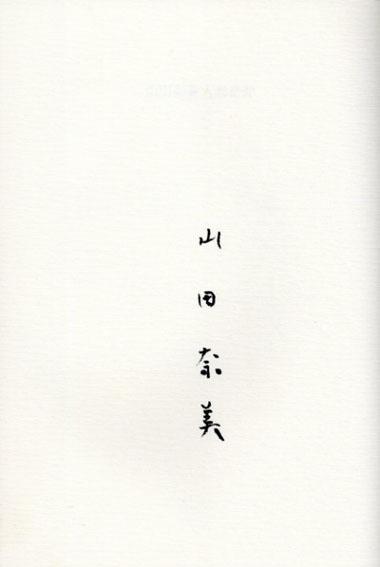 山田奈美